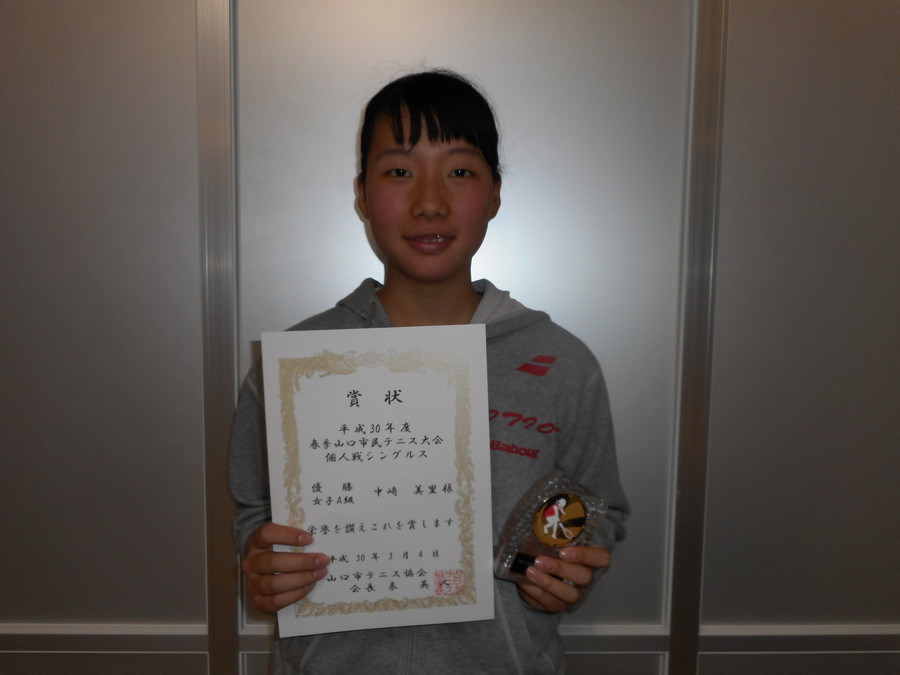 賞状
平成30年度
春季山口市民テニス大会
個人戦シングルス
優勝
女子A級
中崎 美里様
栄誉を讃えこれを賞します
平成30年3月4日
山口市テニス協会
会長 秦 英
Babolat